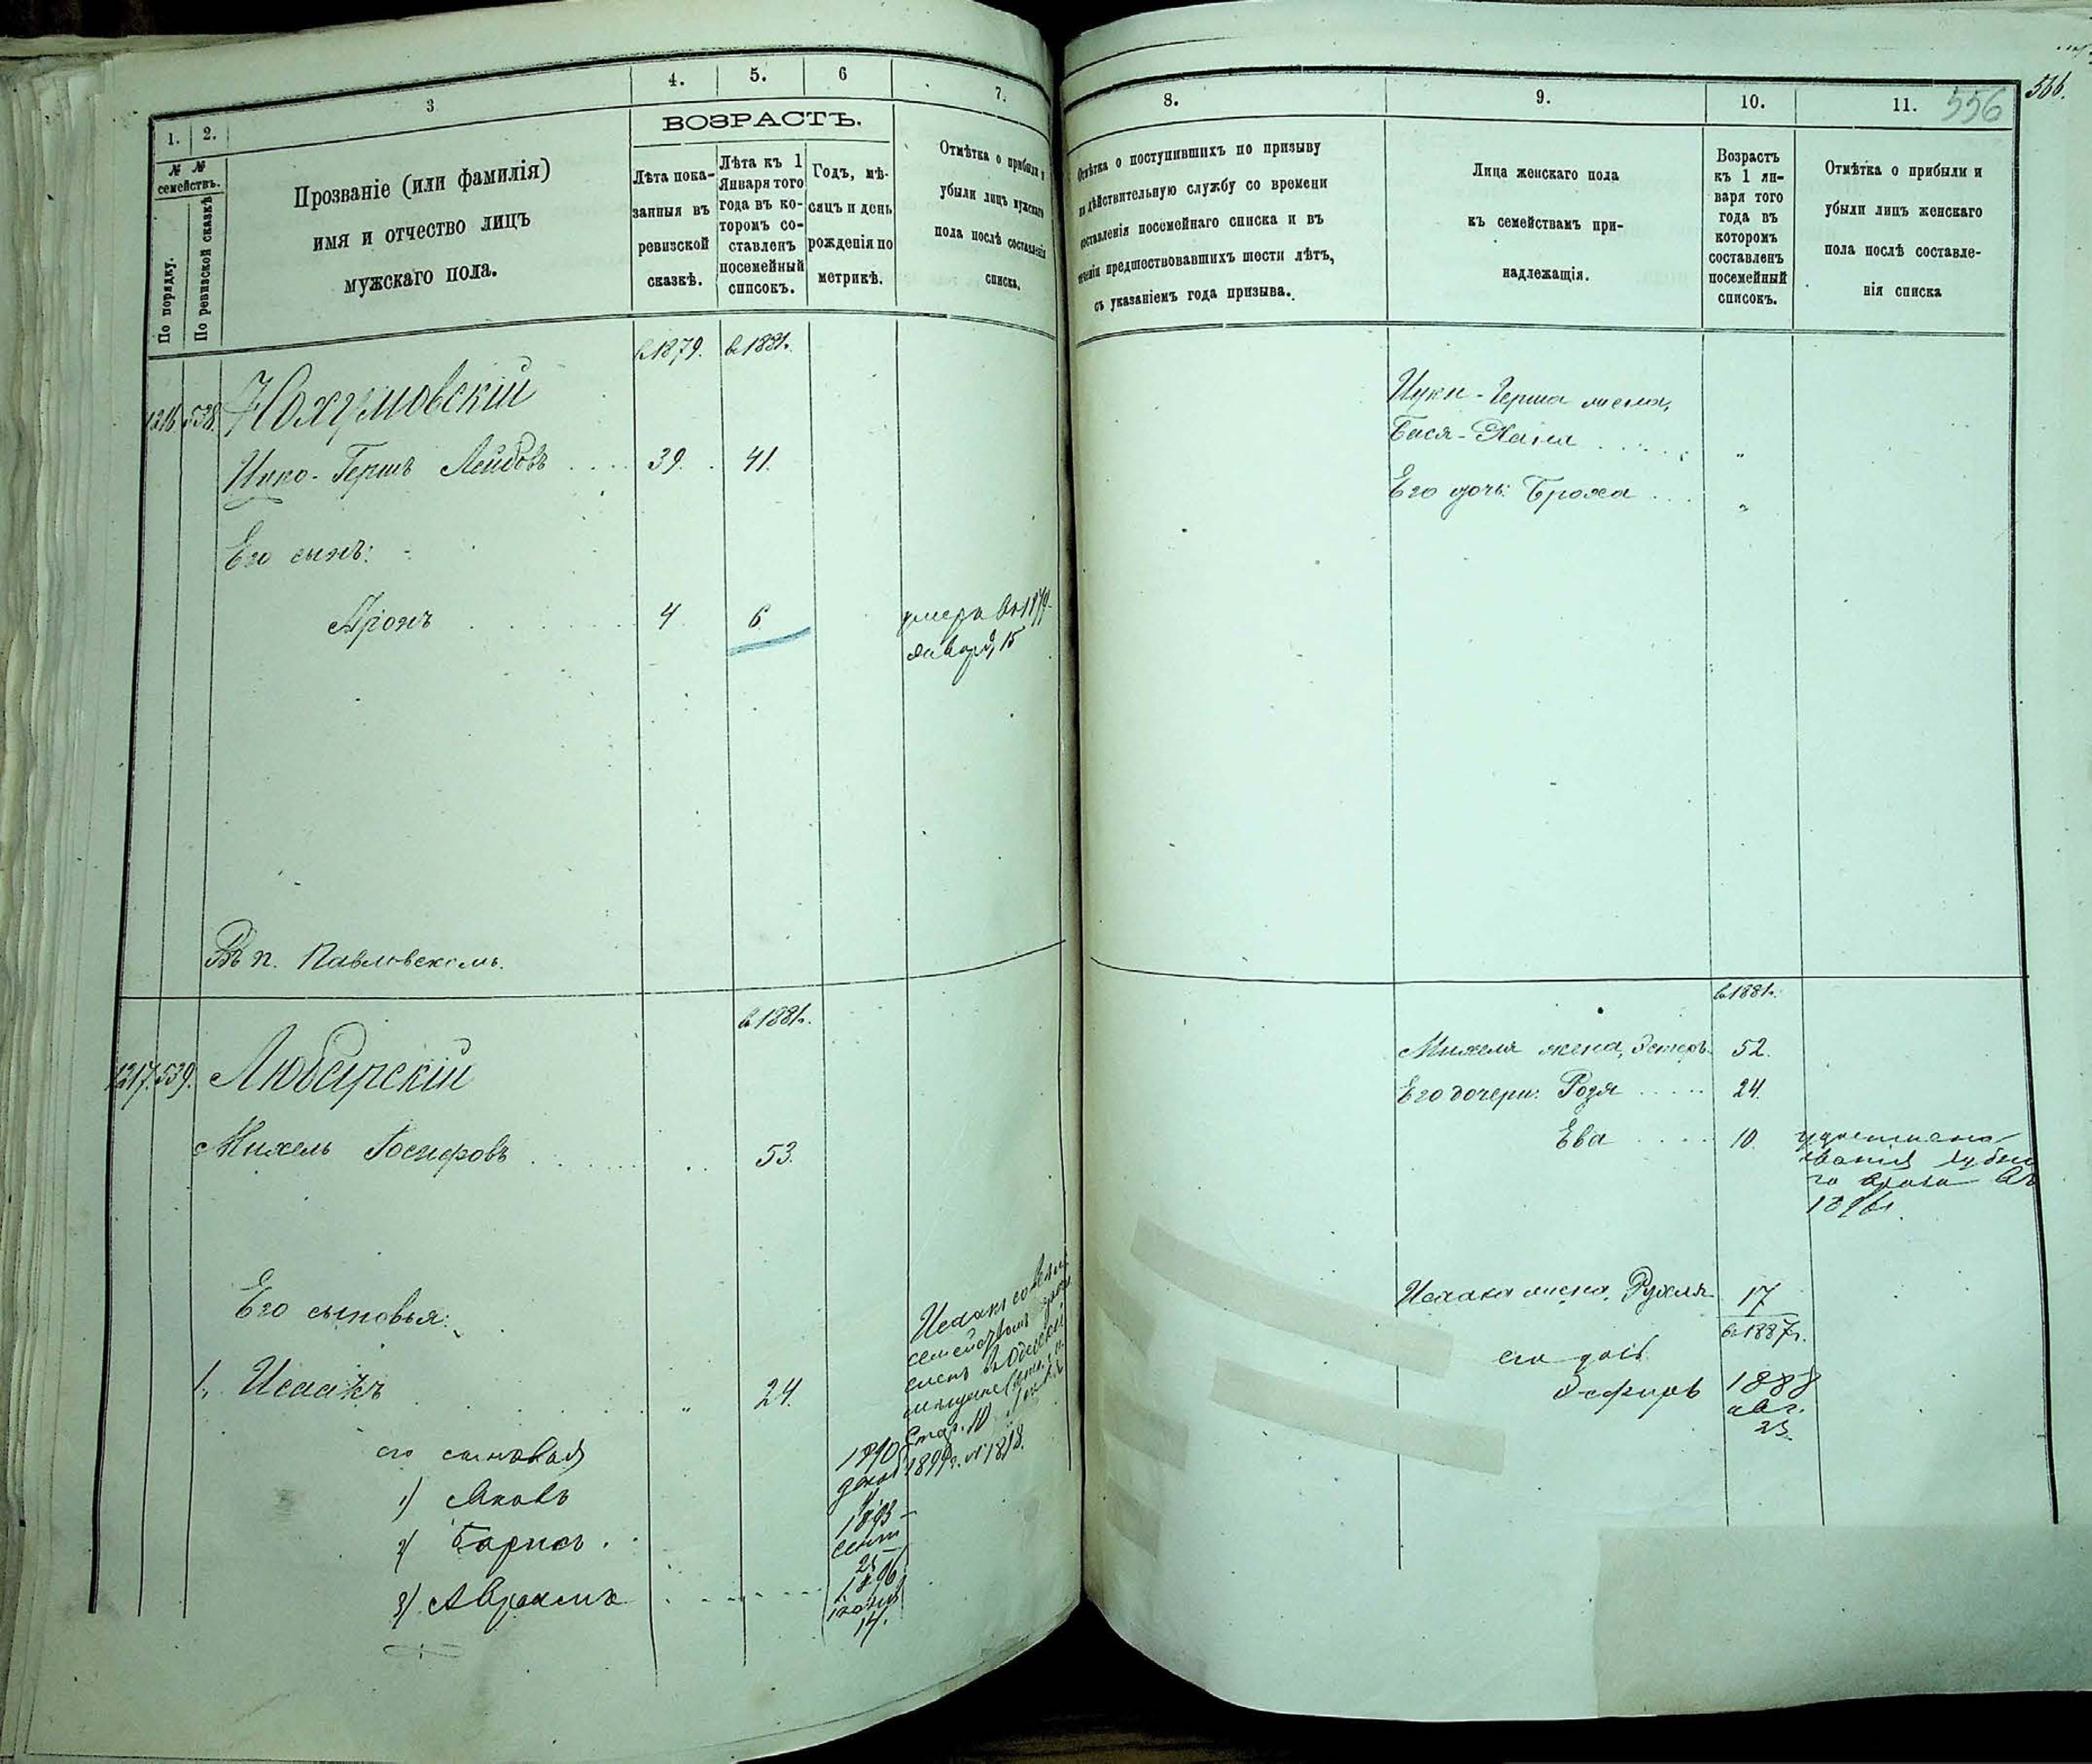 1.
2.
3
4.
5.
6
7.
№ №
семействъ.
По порядку.
По ревизской сказкѣ
Прозваніе (или фамилія)
имя и отчество лицъ
мужскаго пола.
ВОЗРАСТЪ.
Лѣта пока-
занныя въ
ревизской
сказкѣ.
Лѣта къ 1
Января того
года въ ко-
торомъ со-
ставленъ
посемейный
списокъ.
Годъ, мѣ-
сяцъ и день
рожденія по
метрикѣ.
Отмѣтка о прибыли и
убыли лицъ мужскаго
пола послѣ составленія
списка.
в 1879. в 1881.
1216. 538. Нохумовскій
Ицко-Гершъ Лейбовъ 39. 41.
Его сынъ:
Аронъ 4 6
умеръ въ 1879
января 15
Въ п. Павловскомъ.
в 1881.
1217. 539. Любарскій
Михель Іосифовъ 53.
Его сыновья:
1, Исаакъ " 24.
его сыновья
1) Яковъ
2) Борисъ
3) Абрамъ
1890
декаб
1893
сент
25
1896
14.
Исаакъ со всѣмъ
семействомъ
1899 г. № 1818.
8.
9.
10.
11.
556
556.
Отмѣтка о поступившихъ по призыву
на дѣйствительную службу со времени
составленія посемейнаго списка и въ
теченіи предшествовавшихъ шести лѣтъ,
съ указаніемъ года призыва.
Лица женскаго пола
къ семействамъ при-
надлежащія.
Возрастъ
къ 1 ян-
варя того
года въ
которомъ
составленъ
посемейный
списокъ.
Отмѣтка о прибыли и
убыли лицъ женскаго
пола послѣ составле-
нія списка
Ицки-Герша жена,
Бася-Хана "
Его дочь: Броха "
в 1881.
Михеля жена, Эстеръ 52.
Его дочери: Розя 24.
Ева 10.
Исаака жена, Рухля 17
в 1887 г.
его дочь
1888
авг.
23